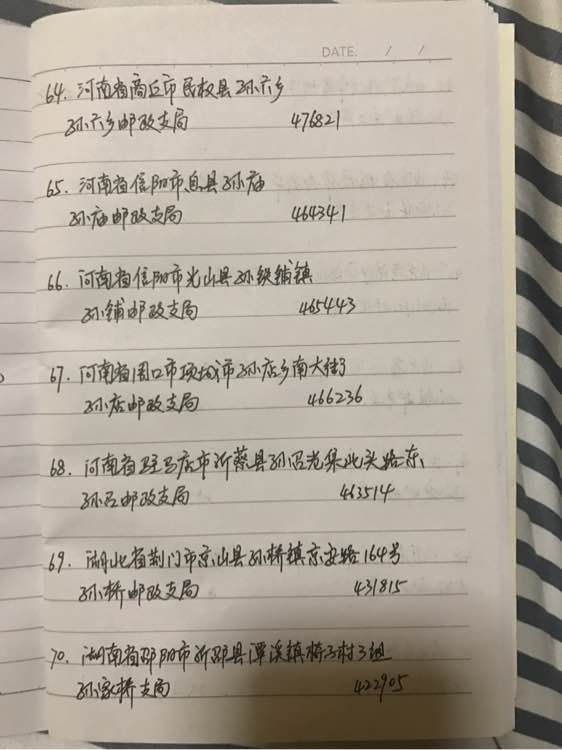 DATE. / /
64. 河南省商丘市民权县孙六乡
孙六乡邮政支局 476821
65. 河南省信阳市息县孙庙
孙庙邮政支局 464341
66. 河南省信阳市光山县孙铁铺镇
孙铺邮政支局 465443
67. 河南省周口市项城市孙店乡南大街
孙店邮政支局 466236
68. 河南省驻马店市新蔡县孙召老集北头路东
孙召邮政支局 463514
69. 湖北省荆门市京山县孙桥镇京安路164号
孙桥邮政支局 431815
70. 湖南省邵阳市新邵县潭溪镇桥子村3组
孙家桥支局 422905